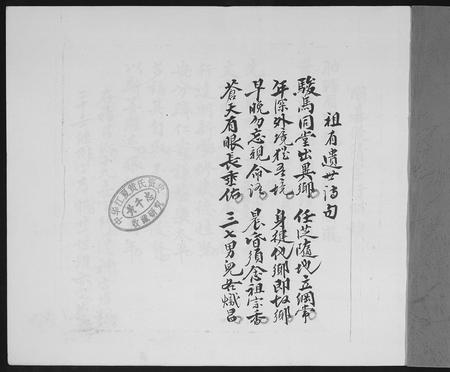 祖有遺世詩句
駿馬同堂出異鄉 任從隨地立綱常
年深外境猶吾境 身健他鄉即故鄉
早晚勿忘親命語 晨昏須念祖宗香
蒼天有眼長垂佑 三七男兒熾昌
中华江夏黄氏
收藏研究